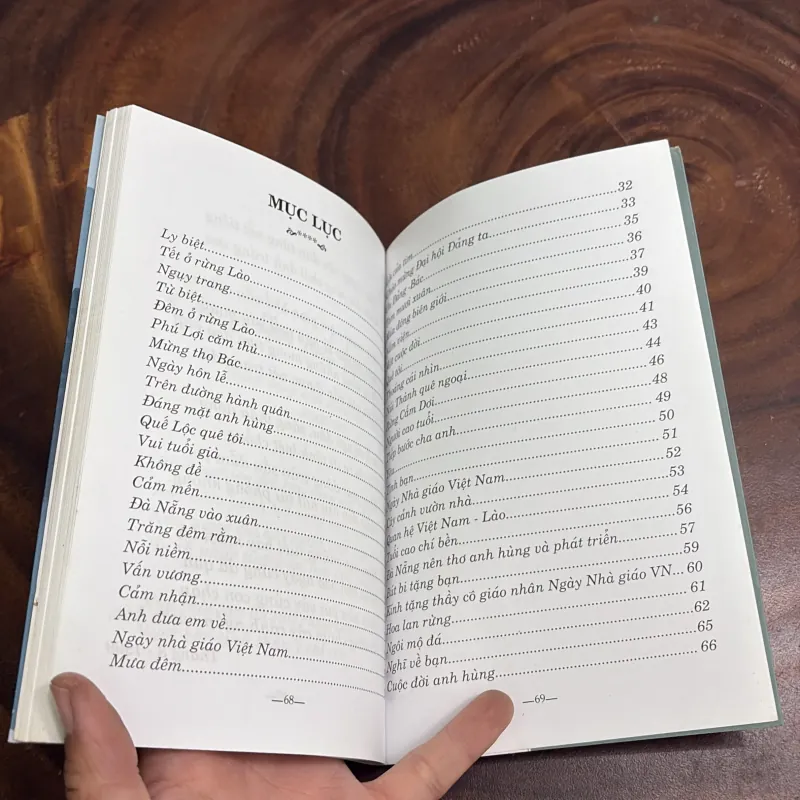 MỤC LỤC
Ly biệt
Tết ở rừng Lào
Ngụy trang
Từ biệt
Đêm ở rừng Lào
Phú Lợi căm thù
Mừng thọ Bác
Ngày hôn lễ
Trên đường hành quân
Đáng mặt anh hùng
Quế Lộc quê tôi
Vui tuổi già
Không đề
Cảm mến
Đà Nẵng vào xuân
Trăng đêm rằm
Nỗi niềm
Vấn vương
Cảm nhận
Anh đưa em về
Ngày nhà giáo Việt Nam
Mưa đêm
—68—
của tim 32
mừng Đại hội Đảng ta 33
Đảng -Bác 35
mười xuân 36
đông biên giới 37
viện 39
cuộc đời 40
tôi 41
cái nhìn 43
Thành quê ngoại 44
Cấm Dơi 46
Người cao tuổi 48
bước cha anh 49
50
bạn 51
Ngày Nhà giáo Việt Nam 52
Cây cảnh vườn nhà 53
Quan hệ Việt Nam - Lào 54
Tuổi cao chí bền 56
Nẵng nên thơ anh hùng và phát triển 57
Bút bi tặng bạn 59
Kính tặng thầy cô giáo nhân Ngày Nhà giáo VN 60
Hoa lan rừng 61
Ngôi mộ đá 62
Nghĩ về bạn 65
Cuộc đời anh hùng 66
—69—